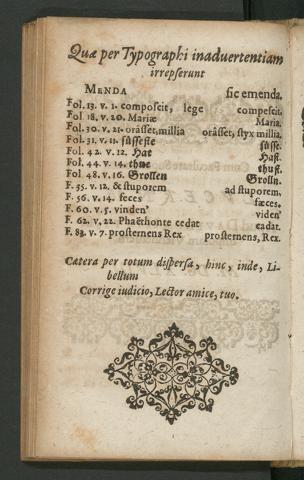 Quæ per Typographi inaduertentiam
irrepserunt
MENDA sic emenda.
Fol. 13. v. 1. composcit, lege compescit.
Fol 18. v. 20. Mariæ Maria.
Fol. 30. v. 21. orâsset, millia orâsset, styx millia.
Fol. 31. v. 11. süsseste süsse.
Fol. 42. v. 12. Hat Hast.
Fol. 44. v. 14. thue thust.
Fol 48. v. 16. Grollen Grolln.
F. 55. v. 12. & stuporem ad stuporem.
F. 56. v. 14. feces fæces.
F. 60. v. 5. vinden' viden'
F. 62. v. 22. Phaëthonte cedat cadat.
F. 83. v. 7. prosternens Rex prosternens, Rex.
Cætera per totum dispersa, hinc, inde, Li-
bellum
Corrige iudicio, Lector amice, tuo.